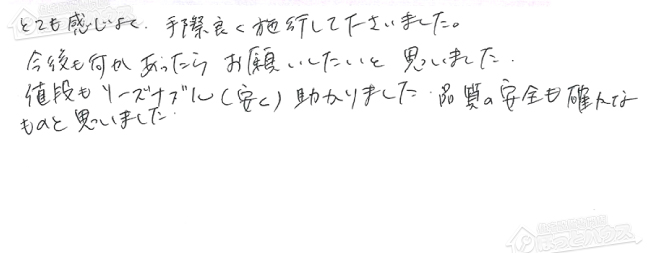 とても感じよく、手際良く施行して下さいました。
今後も何かあったらお願いしたいと思いました.
値段もリーズナブル(安く)助かりました.品質の安全も確かな
ものと思いました.